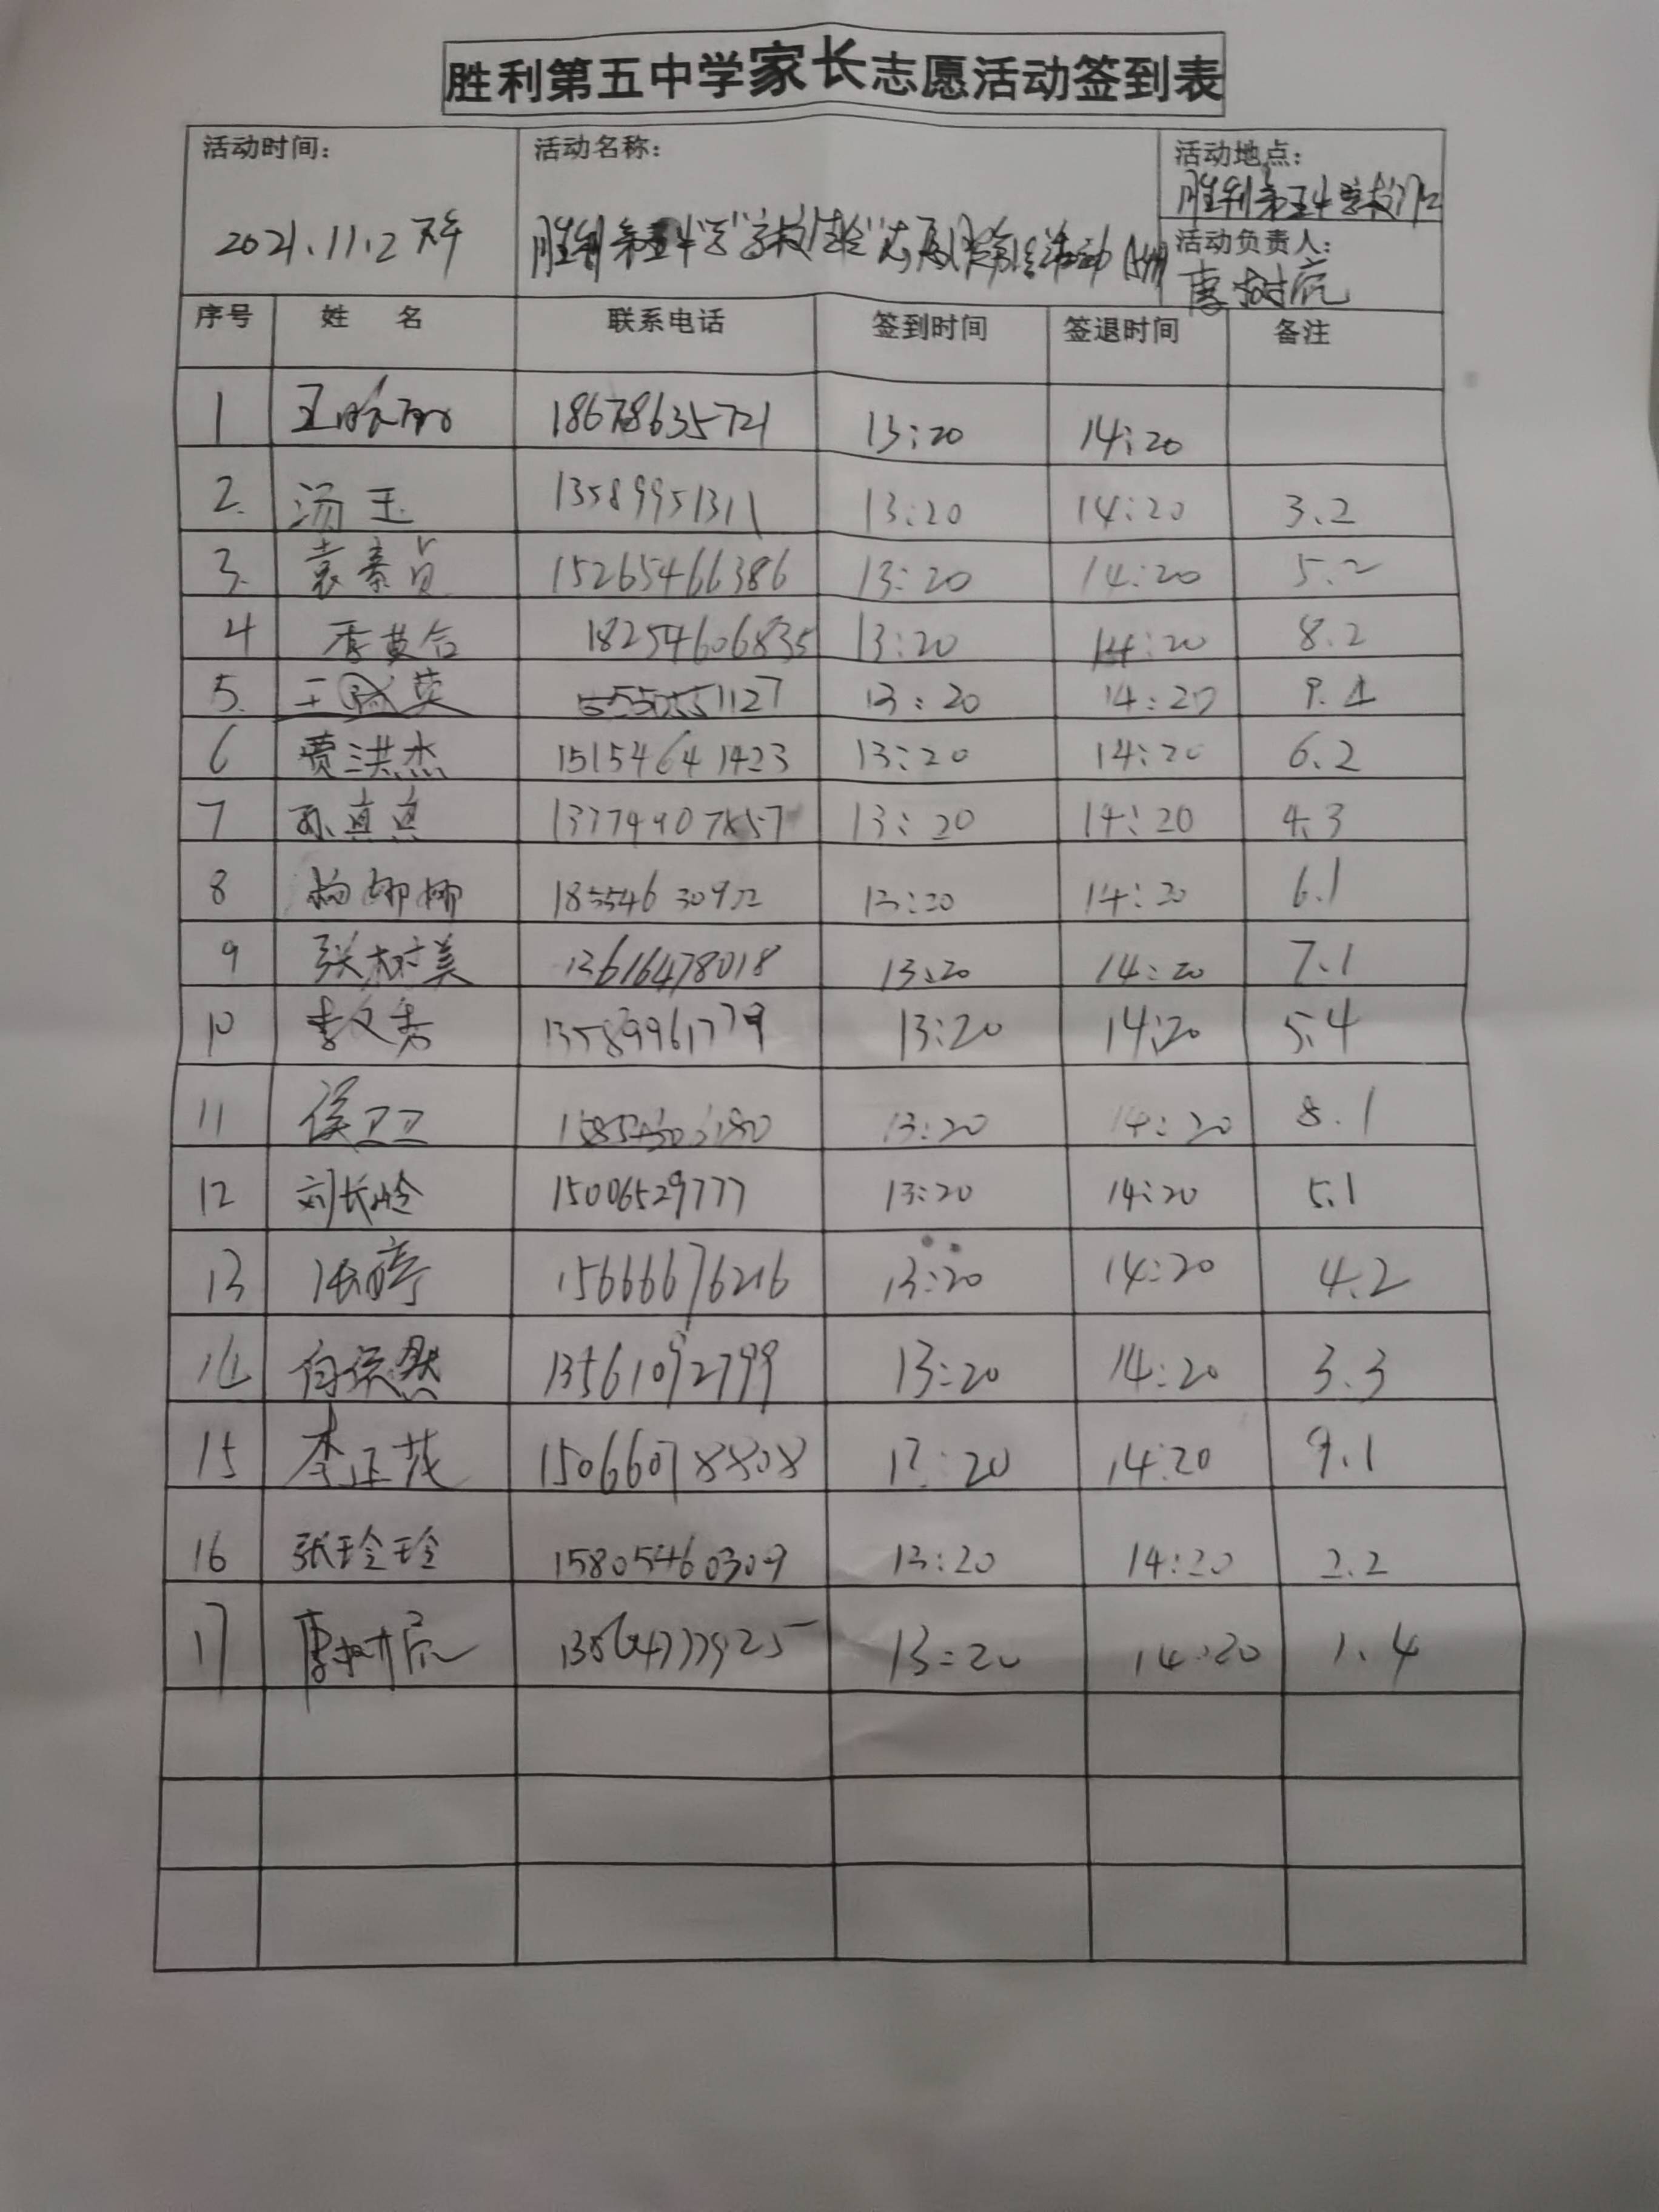 胜利第五中学家长志愿活动签到表
活动时间： 活动名称： 活动地点：
胜利第五中学校门口
2021.11.2 下午 胜利第五中学 志愿 活动
活动负责人：
序号 姓 名 联系电话 签到时间 签退时间 备注
1 王 18678635721 13:20 14:20
2. 汤玉 13589951311 13:20 14:20 3.2
3. 袁素贞 15265466386 13:20 14:20 5.2
4 18254606835 13:20 14:20 8.2
5. 王 英 13:20 14:20 9.4
6 贾洪杰 15154641423 13:20 14:20 6.2
7 孙真真 13:20 14:20 4.3
8 杨娜娜 13:20 14:20 6.1
9 张树美 13616478018 13:20 14:20 7.1
10 李文秀 13589961779 13:20 14:20 5.4
11 侯卫卫 13:20 14:20 8.1
12 刘长岭 15006529777 13:20 14:20 5.1
13 张婷 15666676216 13:20 14:20 4.2
14 13561092799 13:20 14:20 3.3
15 李正茂 15066078808 13:20 14:20 9.1
16 张玲玲 15805460309 13:20 14:20 2.2
17 13:20 14:20 1.4